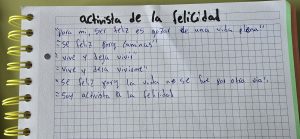 activista de la felicidad
"para mi, ser feliz es gozar de una vida plena"
-se feliz porq caminas"
-vive y deja vivir
-vive y deja vivirme"
-se feliz porq la vida no se fue por otra vía".
-Soy activista de la felicidad